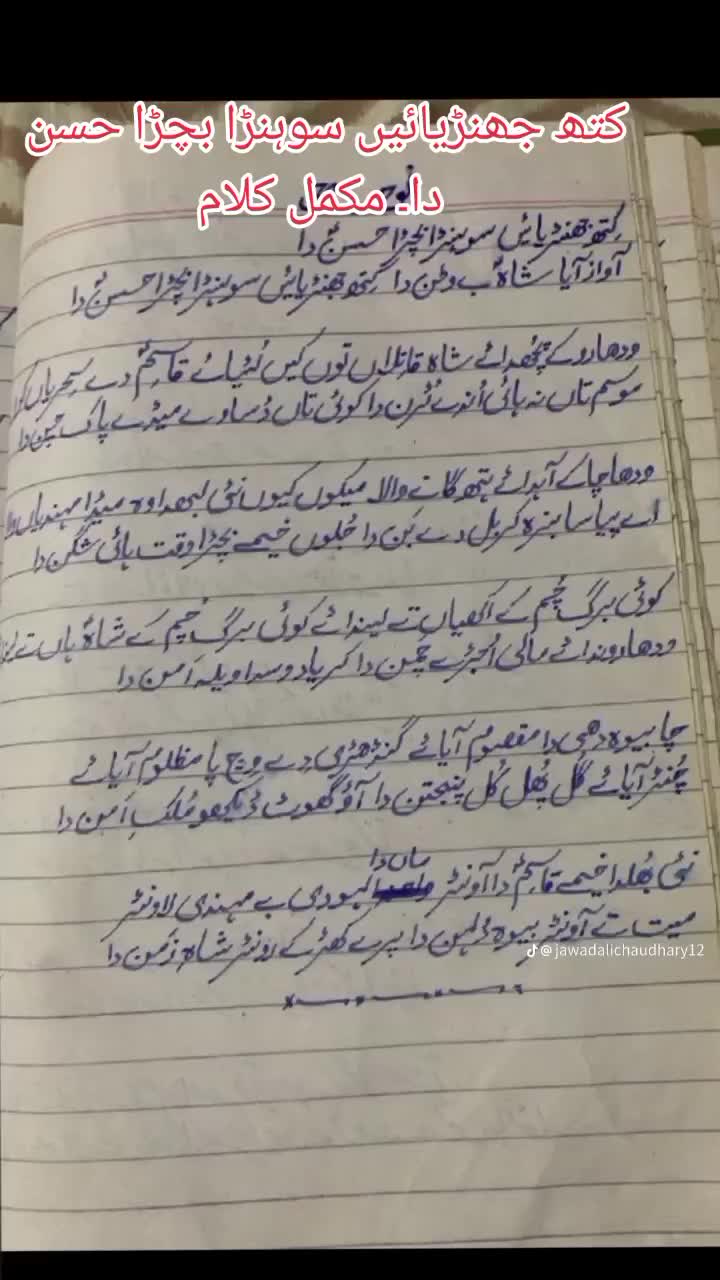 کتھ جھنڑیائیں سوہنڑا بچڑا حسن
دا۔ مکمل کلام
کتھ جھنڑیائیں سوہنڑا بچڑا حسنؑ دا
آواز آیا شاہؑ بے وطن دا کتھ جھنڑیائیں سوہنڑا بچڑا حسنؑ دا
ودھا رو کے پچھدائے شاہ قاتلاں توں کیں لٹیائے قاسمؑ دے سحریاں کوں
موسم تاں نہ ہائی اُندے ٹرن دا کوئی تاں ڈساوے میڈے پاک حسن دا
ودھا چا کے آہدائے ہتھ گانے والا میکوں کیوں نئی لبھدا وہ میڈا مہندیاں
اے پیاسا بنرہ کربل دے بَن دا جُلوں خیمے بچڑا وقت ہائی شگن دا
کوئی برگ چُم کے اکھیاں تے لیندائے کوئی برگ چم کے شاہؑ ہاں تے
ودھا روندائے مالی اُجڑے چمن دا کر یاد وسدا ویلہ اَمن دا
چا بیوہ دھی دا مقصوم آیائے گنڈھڑی دے وچ پا مظلوم آیائے
چُنڑ آیائے گُل پھُل کُل پنجتن دا آؤ گھوٹ ڈیکھو مُلکِ اَمن دا
ماں دا
نئی بُھلدا خیمے قاسمؑ دا آونڑ کبودی بے مہندی لاونڑ
میت تے آونڑ بیوہ ڈلہن دا پرے کھڑ کے رونڑ شاہِ زَمن دا
@jawadalichaudhary12